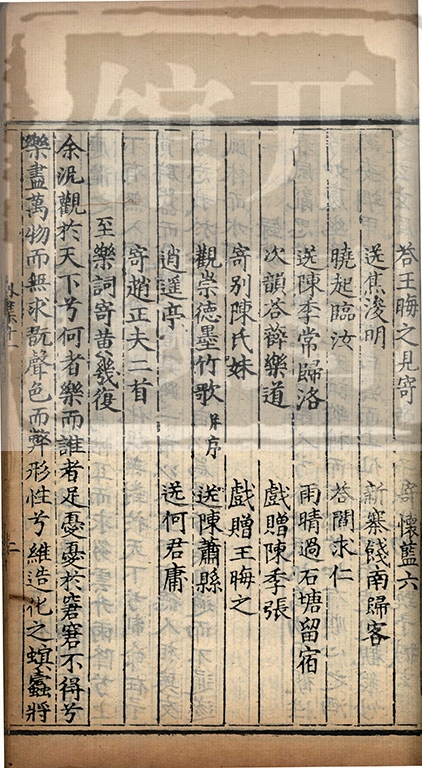 答王晦之見寄 寄懷藍六
送焦浚明 新寨餞南歸客
曉起臨汝 答閻求仁
送陳季常歸洛 雨晴過石塘留宿
次韻答齊樂道 戲贈陳季張
寄別陳氏妹 戲贈王晦之
觀崇德墨竹歌 并序 送陳蕭縣
逍遥亭 送何君庸
寄趙正夫二首
至樂詞寄黄幾復
余泛觀於天下兮何者樂而誰者足憂憂於窘窘不得兮
樂盡萬物而無求翫聲色而弊形性兮維造化之螟蠹將